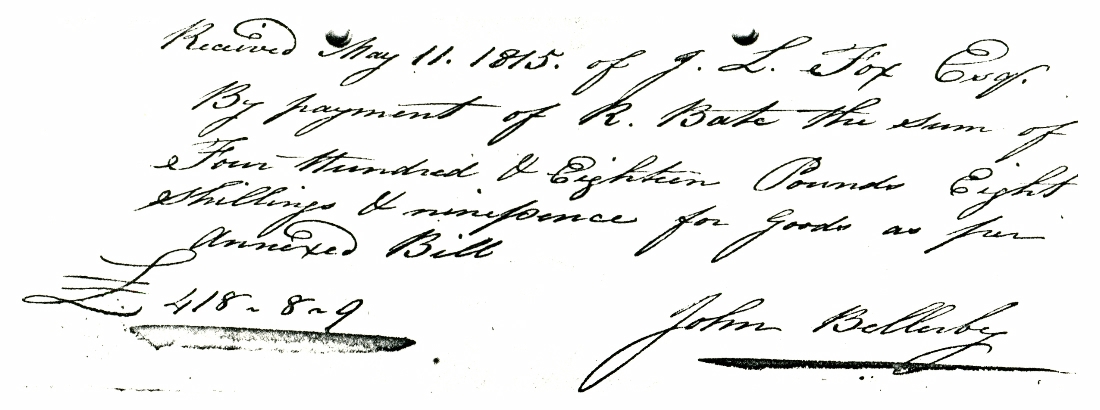 Received May 11. 1815. of J. L. Fox Esqr.
By payment of R. Bate the sum of
Four Hundred & Eighteen Pounds Eight
Shillings & ninepence for Goods as per
Annexed Bill
£. 418 - 8 - 9
John Bellerby